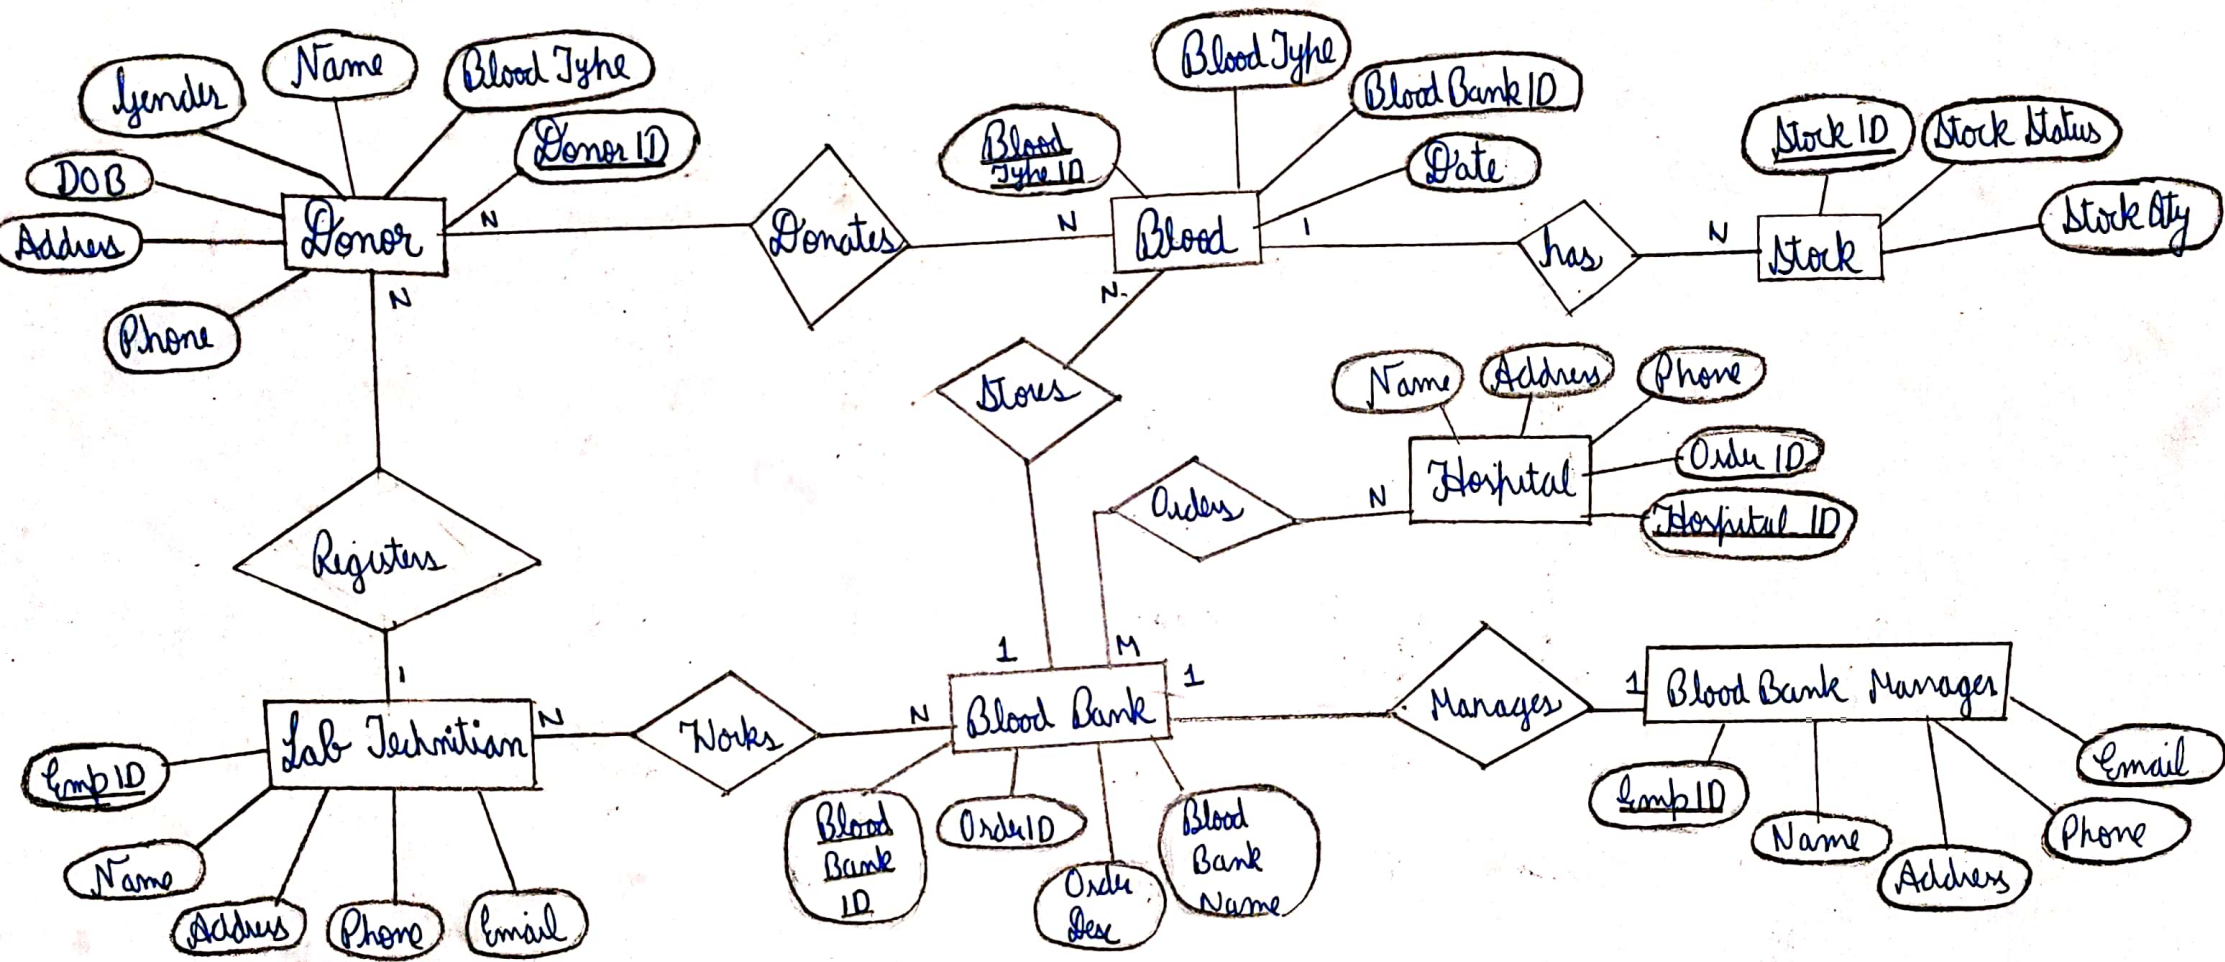 Gender
Name
Blood Type
Donor ID
DOB
Address
Phone
Donor
N
N
Donates
N
Blood
Type ID
Blood Type
Blood Bank ID
Date
Blood
1
N.
has
N
Stock
Stock ID
Stock Status
Stock Qty
Stores
Name
Address
Phone
Order ID
Hospital ID
Hospital
N
Orders
Registers
1
1
M
1
Manages
1
Blood Bank Manager
Lab Technitian
N
Works
N
Blood Bank
Emp ID
Name
Address
Phone
Email
Blood
Bank
ID
Order ID
Order
Desc
Blood
Bank
Name
Emp ID
Name
Address
Phone
Email